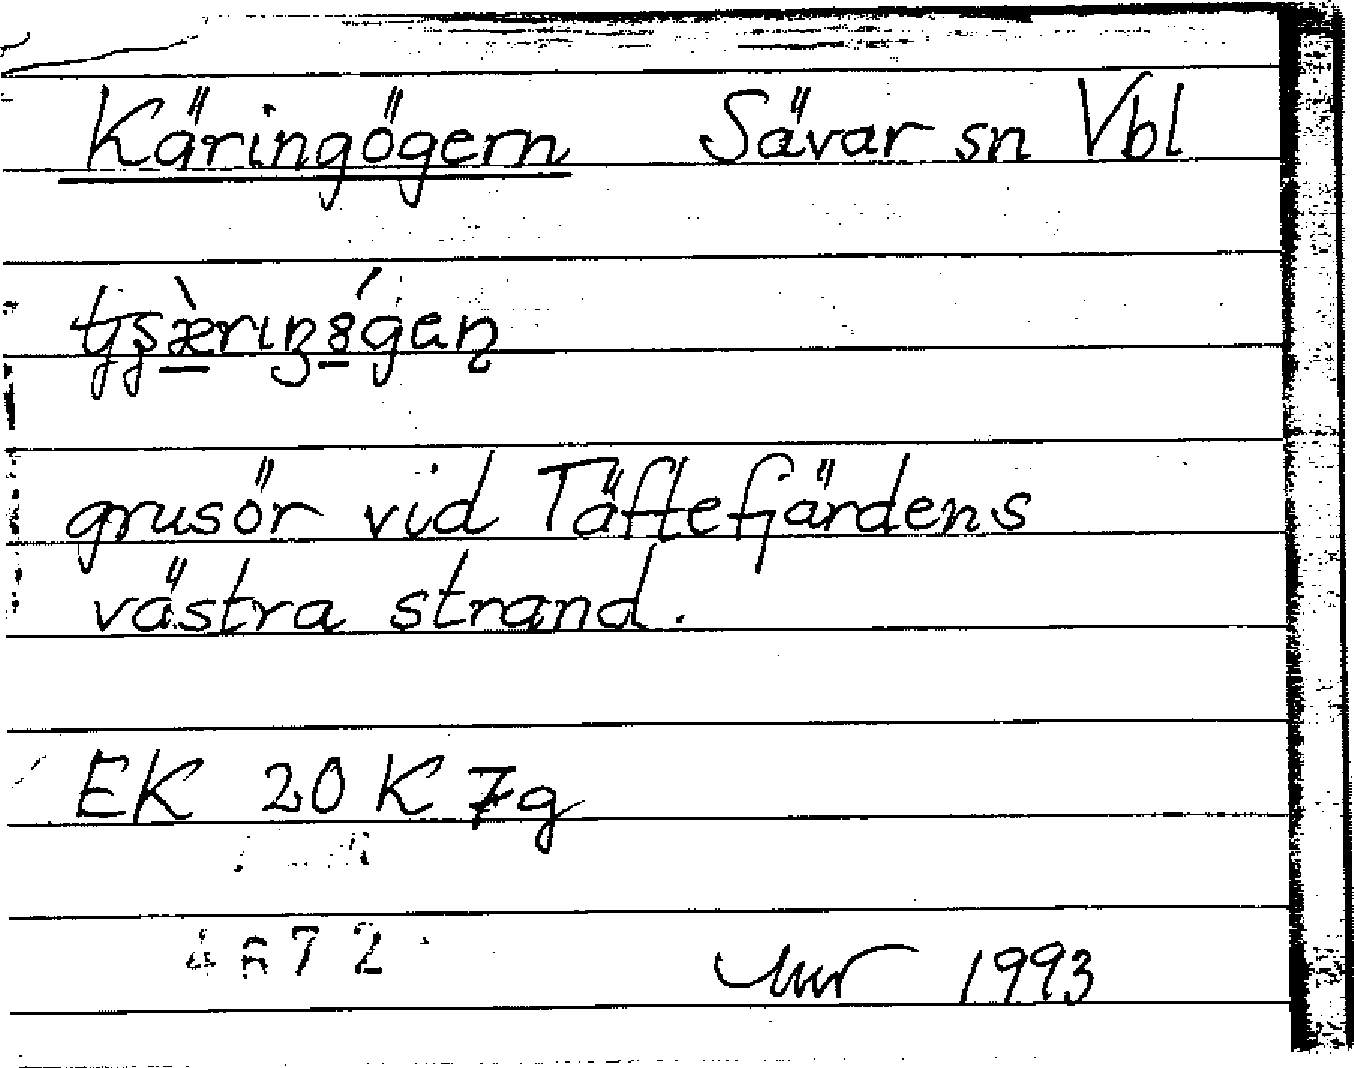 Käringögern Sävar sn Vbl
grusör vid Täftefjärdens
västra strand.
EK 20 K 7g
1993